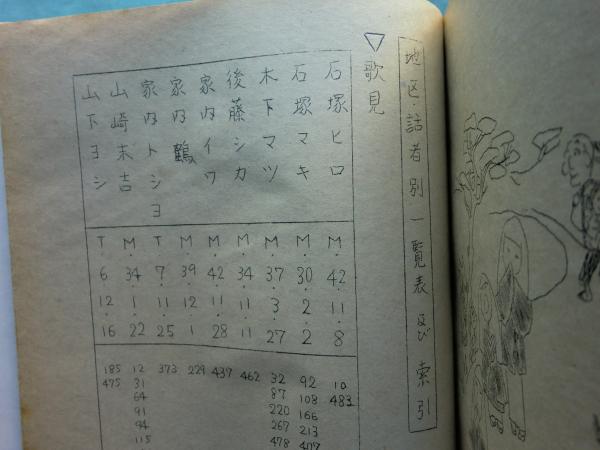 地区・話者別一覧表 及び 索引
▽歌見
石塚ヒロ M.42.11.8 10 483
石塚マキ M.30.2.2 92 108 166 213 407
木下マツ M.37.3.27 32 87 220 267 478
後藤シカ M.34.11.11 462
家内イワ M.42.11.28 437
家内鶴 M.39.12.1 229
家内トシヨ T.7.11.25 373
山崎末吉 M.34.1.22 12 31 64 91 94 115
山下ヨシ T.6.12.16 185 475